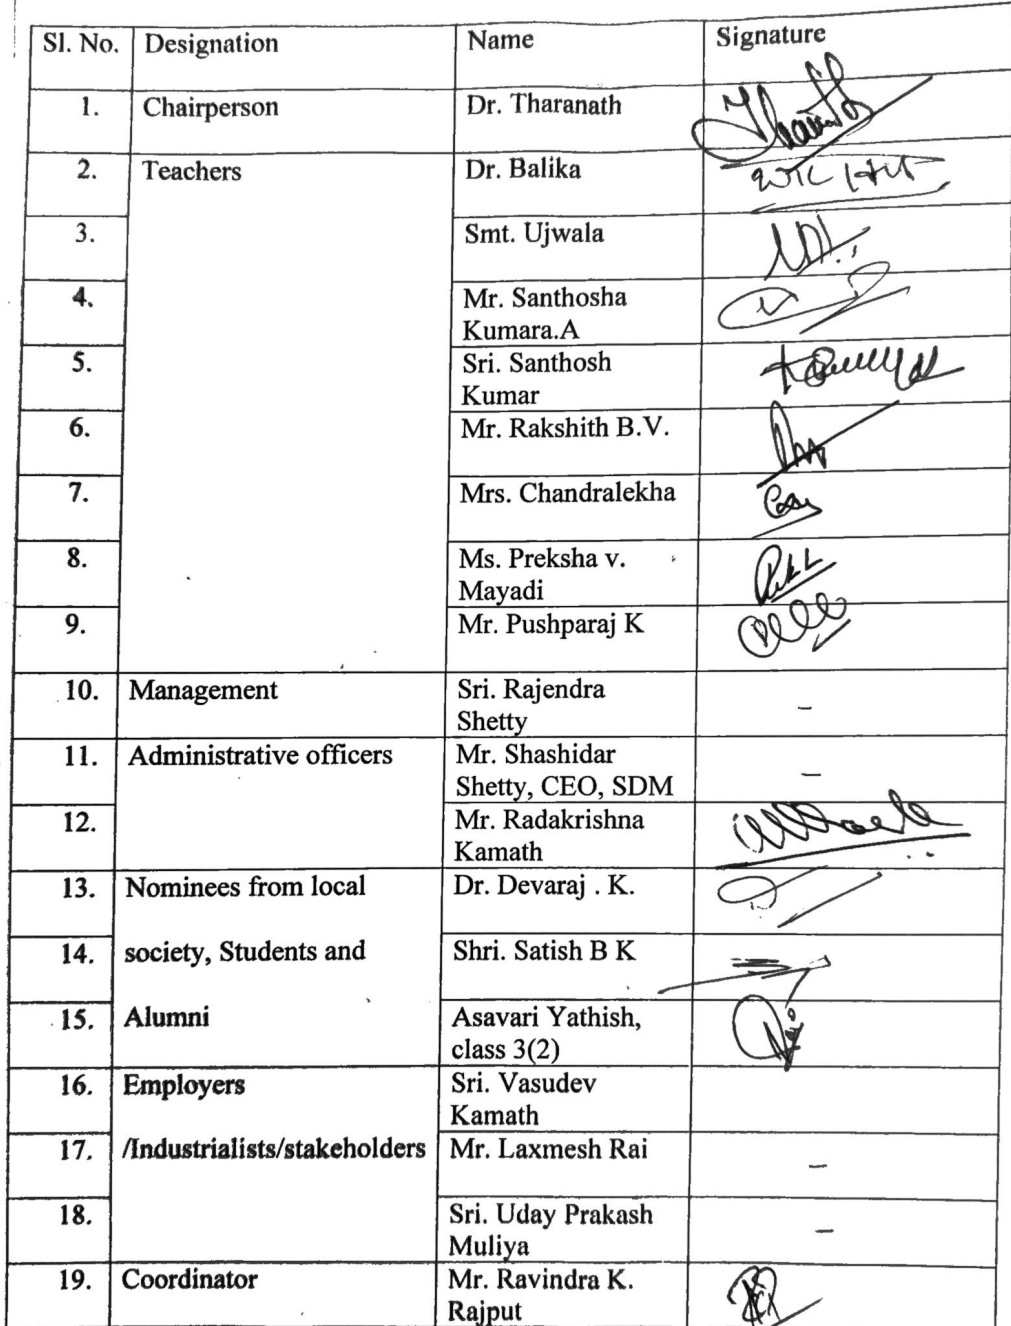 Sl. No. Designation Name Signature
1. Chairperson Dr. Tharanath
2. Teachers Dr. Balika
3. Smt. Ujwala
4. Mr. Santhosha
Kumara.A
5. Sri. Santhosh
Kumar
6. Mr. Rakshith B.V.
7. Mrs. Chandralekha
8. Ms. Preksha v.
Mayadi
9. Mr. Pushparaj K
10. Management Sri. Rajendra –
Shetty
11. Administrative officers Mr. Shashidar –
Shetty, CEO, SDM
12. Mr. Radakrishna
Kamath
13. Nominees from local Dr. Devaraj . K.
14. society, Students and Shri. Satish B K
15. Alumni Asavari Yathish,
class 3(2)
16. Employers Sri. Vasudev
Kamath
17. /Industrialists/stakeholders Mr. Laxmesh Rai –
18. Sri. Uday Prakash –
Muliya
19. Coordinator Mr. Ravindra K.
Rajput